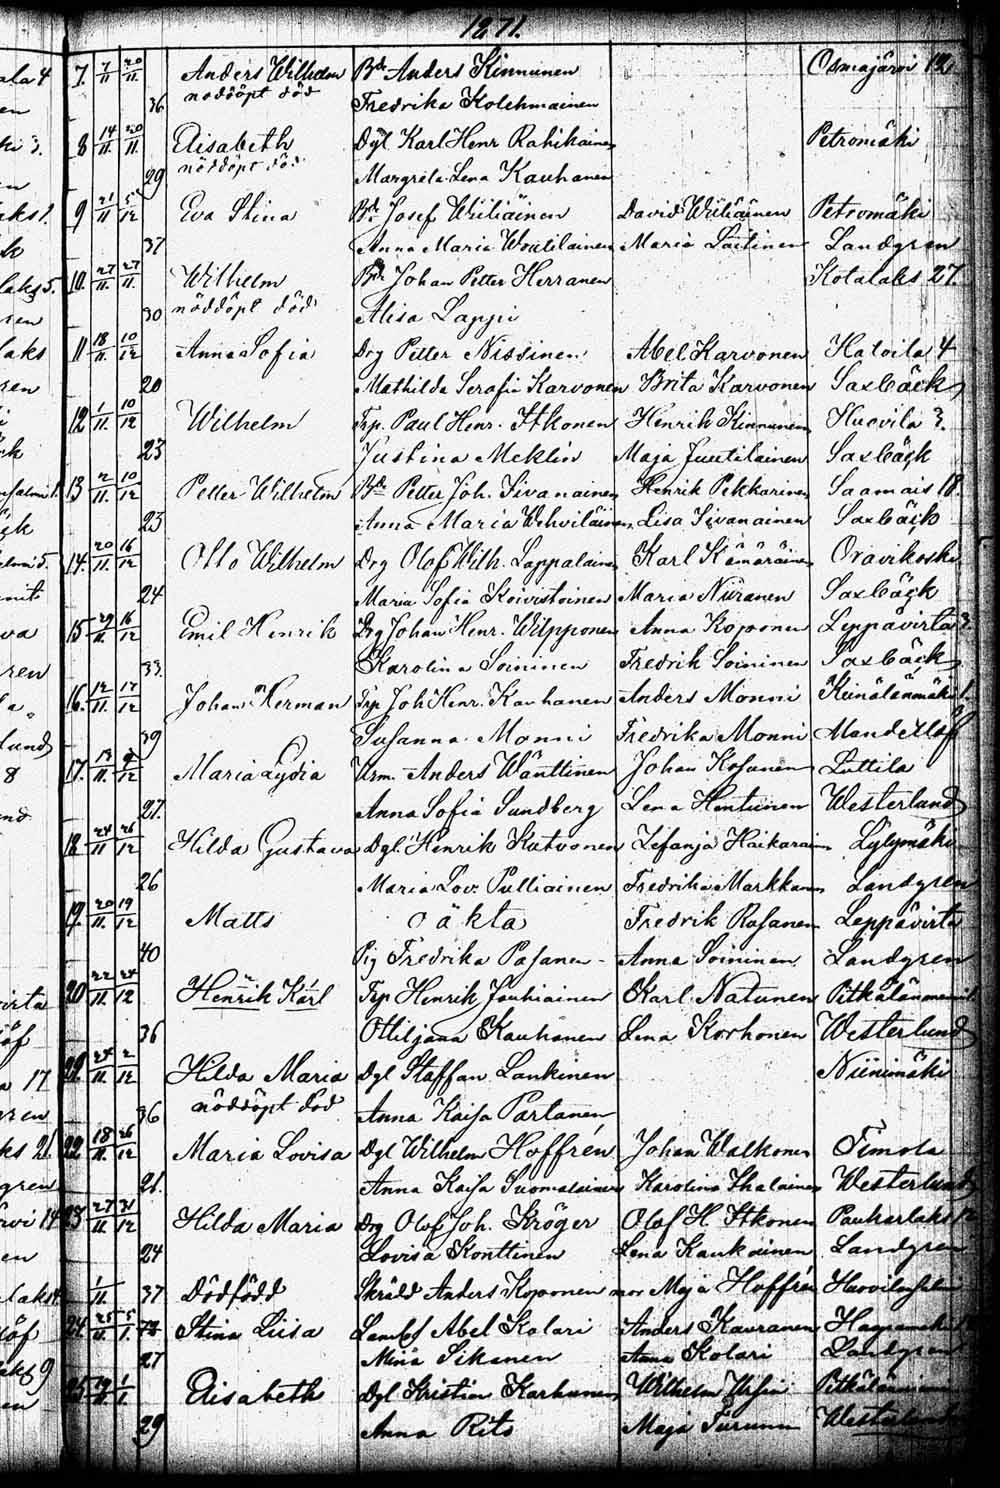 1871.
7. 7/11 20/11 Anders Wilhelm Bd. Anders Kinnunen Osmajärvi 12.
36 nöddöpt död Fredrika Kolehmainen
8 14/11 20/11 Elisabeth Dgl. Karl Henr Rahikainen Petromäki
29 nöddöpt död Margreta Lena Kauhanen
9 21/11 5/12 Eva Stina Bd. Josef Wiiliäinen David Wiiliäinen Petromäki
37 Anna Maria Woutilainen Maria Laitinen Landgren
10. 27/11 27/11 Wilhelm Bd. Johan Petter Herranen Kotalaks 27.
30 nöddöpt död Alisa Lappi
11 18/11 10/12 Anna Sofia Drg Petter Nissinen Abel Karvonen Hatoila 4
20 Mathilda Serafia Karvonen Brita Karvonen Saxbäck
12 1/11 10/12 Wilhelm Trp. Paul Henr. Itkonen Henrik Kinnunen Huovila 3.
23 Justina Meklin Maja Juutilainen Saxbäck
13 2/11 10/12 Petter Wilhelm Bd. Petter Joh. Sivanainen Henrik Pekkarinen Saamais 18.
23 Anna Maria Wehviläinen Lisa Sivanainen Saxbäck
14. 20/11 16/12 Otto Wilhelm Drg Olof Wilh. Lappalainen Karl Kämäräinen Oravikoski
24 Maria Sofia Koivistoinen Maria Niiranen Saxbäck
15 29/11 16/12 Emil Henrik Drg Johan Henr. Wilpponen Anna Koponen Leppävirta 3.
33. Karolina Soininen Fredrik Soininen Saxbäck
16. 12/11 17/12 Johan Herman Trp Joh Henr. Kauhanen Anders Monni
39 Susanna Monni Fredrika Monni Mandellöf
17. 13/11 /12 Maria Lydia Anders Wänttinen Johan Kosanen Luttila
27. Anna Sofia Sundberg Lena Hentunen Westerlund
18. 24/11 26/12 Hilda Gustava Dgl. Henrik Kutvonen Zefanja Haikarainen Lylymäki
26 Maria Lov. Pulliainen Fredrika Markkanen Landgren
19. 20/11 19/12 Matts oäkta Fredrik Rasanen Leppävirta
40 Pig Fredrika Pasanen Anna Soininen Landgren
20 22/11 24/12 Henrik Karl Trp Henrik Jauhiainen Karl Natunen
36 Ottiljana Kauhanen Lena Korhonen Westerlund
21. 24/11 2/12 Hilda Maria Dgl Staffan Lankinen Niinimäki
36 nöddöpt död Anna Kaisa Partanen
22 18/11 26/12 Maria Lovisa Dgl Wilhelm Hoffrén Johan Walkonen Timola
21. Anna Kaisa Suomalainen Karolina Ihalainen Westerlund
23 27/11 31/12 Hilda Maria Drg Olof Joh. Kröger Olof H. Itkonen Paukarlaks
24 Lovisa Konttinen Lena Kaukainen Landgren
1/11 37 Dödfödd Skrädd Anders Koponen mor Maja Hoffrén
24. 25/11 5/1. Stina Liisa Abel Kolari Anders Kauranen
27 Mina Sikanen Anna Kolari Landgren
25 19/11 1/1. Elisabeth Dgl Kristian Karhunen Wilhelm Ursin
29 Anna Rito Maja Turunen Westerlund